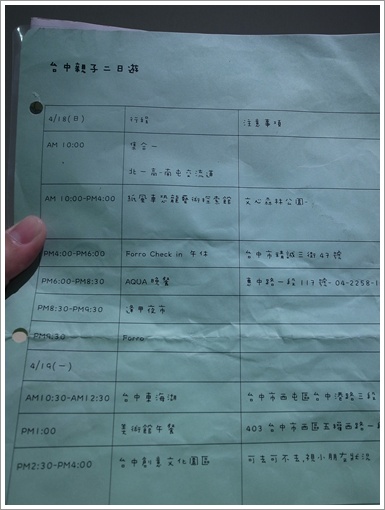 台中親子二日遊
4/18(日) 行程 注意事項
AM 10:00 集合一
北一高-南屯交流道
AM 10:00-PM4:00 玩風車恐龍藝術探索館 文心森林公園
PM4:00-PM6:00 Forro Check in 午休 台中市精誠三街47號
PM6:00-PM8:30 AQUA 晚餐 惠中路一段117號- 04-2258-1
PM8:30-PM9:30 逢甲夜市
PM9:30 Forro
4/19(一)
AM10:30-AM12:30 台中東海湖 台中市西屯區台中港路三段
PM1:00 美術館午餐 403 台中市西區五權西路一
PM2:30-PM4:00 台中創意文化園區 可去可不去,視小朋友狀況